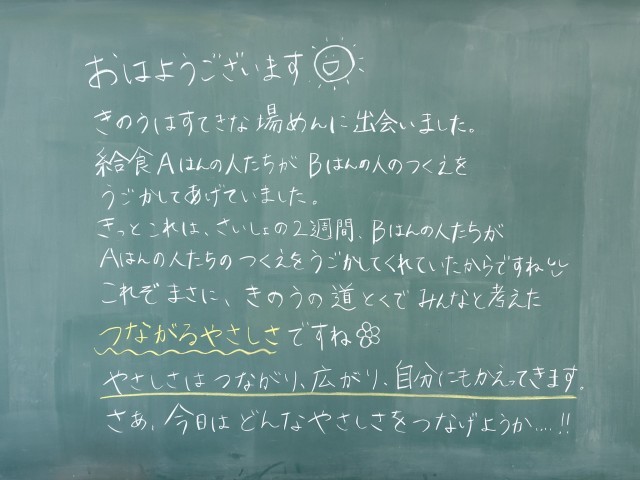 おはようございます
きのうはすてきな場めんに出会いました。
給食Aはんの人たちがBはんの人のつくえを
うごかしてあげていました。
きっとこれは、さいしょの2週間、Bはんの人たちが
Aはんの人たちのつくえをうごかしてくれていたからですね
これぞまさに、きのうの道とくでみんなと考えた
つながるやさしさですね
やさしさはつながり、広がり、自分にもかえってきます。
さあ、今日はどんなやさしさをつなげようか....!!